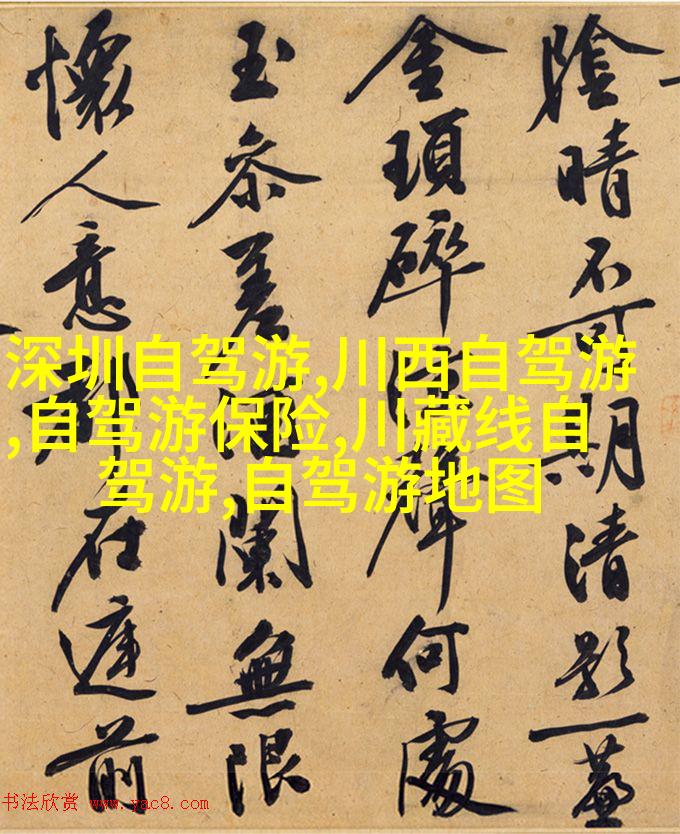 陰晴不可期清影一
金瑣碎聲何處
玉參差闌無限
懷人意在前
深圳自驾游,川西自驾游
,自驾游保险,川藏线自
驾游,自驾游地图
书法欣赏 www.yac8.com